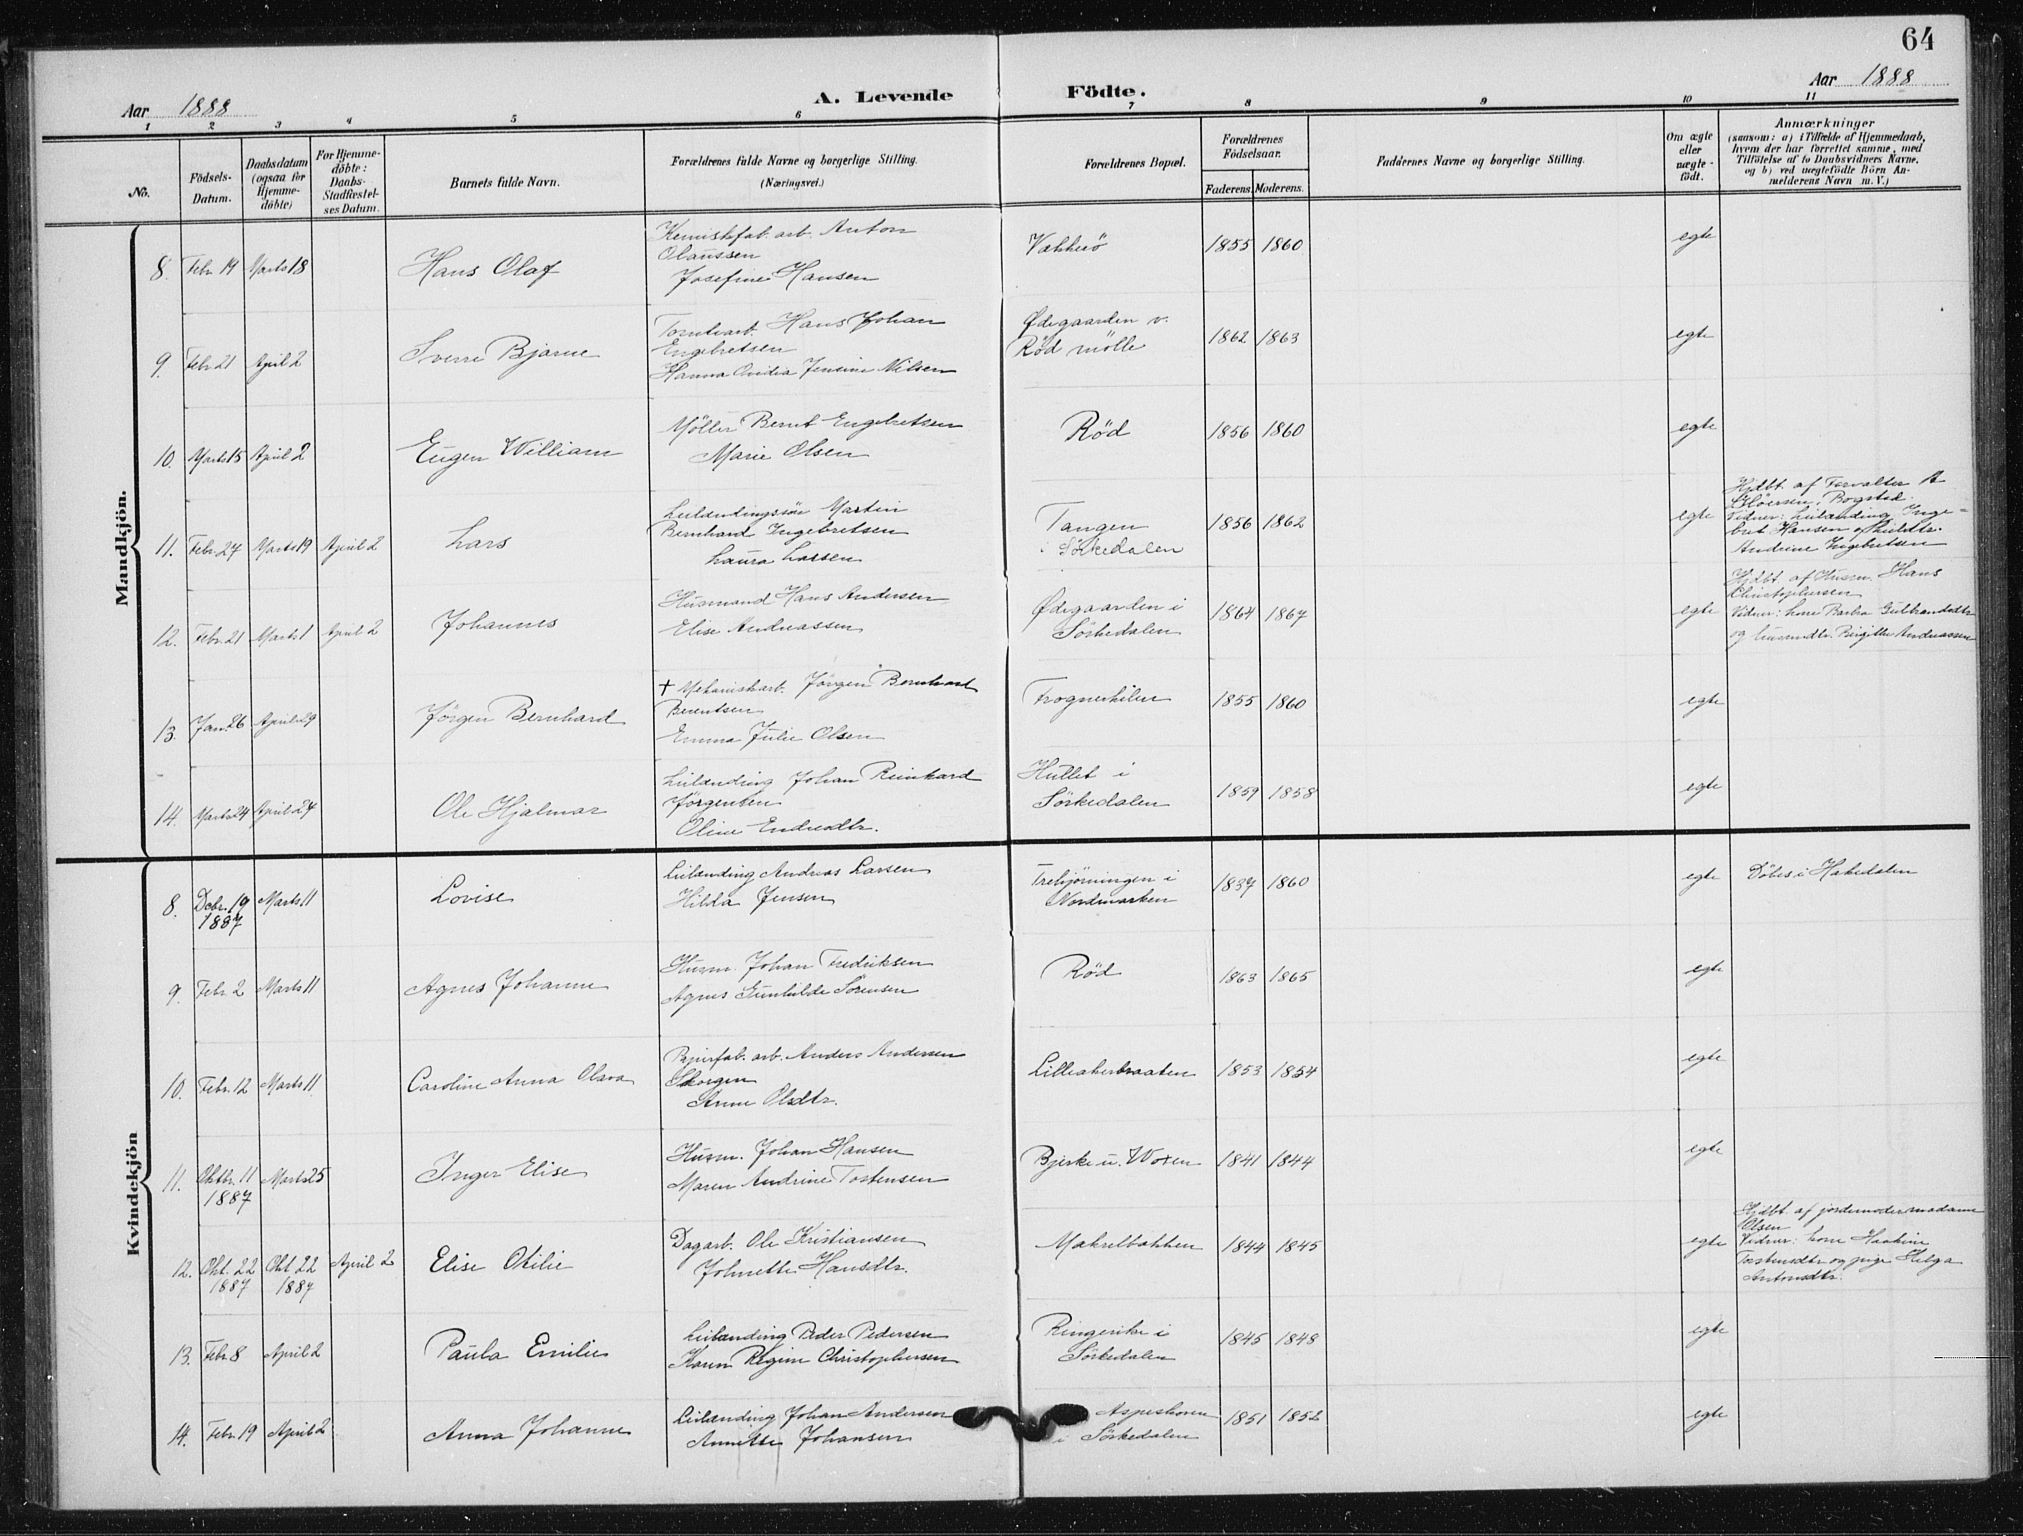 64
Aar 1888
A. Levende Födte.
Aar 1888
1 2 3 4 5 6 7 8 9 10 11
No.
Födsels-Datum.
Daabsdatum (ogsaa for Hjemmedöbte)
For Hjemmedöbte: Daabs-Stadfæstelses Datum.
Barnets fulde Navn.
Forældrenes fulde Navne og borgerlige Stilling. (Næringsvei.)
Forældrenes Bopæl.
Forældrenes Födselsaar.
Faderens. Moderens.
Faddernes Navne og borgerlige Stilling.
Om ægte eller uægtefödt.
Anmærkninger
(saasom: a) i Tilfælde af Hjemmedaab,
hvem der har forrettet samme, med
Tilföielse af to Daabsvidners Navne,
og b) ved uægtefödte Börn An-
melderens Navn m. V.)
Mandkjön.
8. Febr. 14 Marts 18 Hans Olaf
Kemiskfab. arb. Anton
Olaussen
Josefine Hansen
Vækkerö 1855 1860 egte
9. Febr. 21 April 2 Sverre Bjarne
Hans Johan
Engebretsen
Hanna Ovidia Jensine Nilsen
Ødegaarden v.
Rød mølle 1862 1863 egte
10. Marts 15 April 2 Eugen William
Møller Bernt Engebretsen
Marie Olsen
Rød 1856 1860 egte
11. Febr. 27 Marts 19 April 2 Lars
Leilændingssøn Martin
Bernhard Ingebretsen
Laura Larsen
Tangen
i Sörkedalen 1856 1862 egte
Hjdbt. af Forvalter A.
Bogstad.
Vidner: Leilænding Inge-
bret Hansen og
Andrine Ingebretsen
12. Febr. 21 Marts 1 April 2 Johannes
Husmand Hans Andersen
Elise Andreassen
Ødegaarden i
Sörkedalen 1864 1867 egte
Hjdbt. af Husm. Hans
Christophersen
Vidner: kone Barbra Gulbrandsdtr.
og husmdtr. Birgitte Andreassen
13. Jan. 26 April 29 Jörgen Bernhard
† Mekaniskarb. Jörgen Bernhard
Berentsen
Emma Julie Olsen
Frognerkilen 1855 1860 egte
14. Marts 24 April 24 Ole Hjalmar
Leilænding Johan Reinhard
Jörgensen
Oline Endresdtr.
Hullet i
Sörkedalen 1859 1858 egte
Kvindekjön
8. Dcbr. 19 1887 Marts 11 Lovise
Leilænding Andreas Larsen
Hilda Jensen
Trehjörningen i
Nordmarken 1837 1860 egte Döbt i Hakedalen
9. Febr. 2 Marts 11 Agnes Johanne
Husm. Johan Fredriksen
Agnes Gunhilde Sörensen
Rød 1863 1865 egte
10. Febr. 12 Marts 11 Caroline Anna Olava
Papirfab. arb. Anders Andersen
Skorgen
Anne Olsdtr.
Lilleakerbraaten 1853 1854 egte
11. Oktbr. 11 1887 Marts 25 Inger Elise
Husm. Johan Hansen
Maren Andrine Tostensen
Bjerke u. Voxen 1841 1844 egte
12. Okt. 22 1887 Okt 22 1887 April 2 Elise Otilie
Dagarb. Ole Kristiansen
Johnette Hansdtr.
Makrelbækken 1844 1845 egte
Hjdbt. af jordemoder madame
Olsen
Vidner: kone Haakine
Torstensdtr og pige Helga
Antonsdtr.
13. Febr. 8 April 2 Paula Emilie
Leilænding Peder Pedersen
Karen Regine Christophersen
Ringerike i
Sörkedalen 1845 1848 egte
14. Febr. 19 April 2 Anna Johanne
Leilænding Johan Andersen
Annette Johansen
Aspeskoven
i Sörkedalen 1851 1852 egte